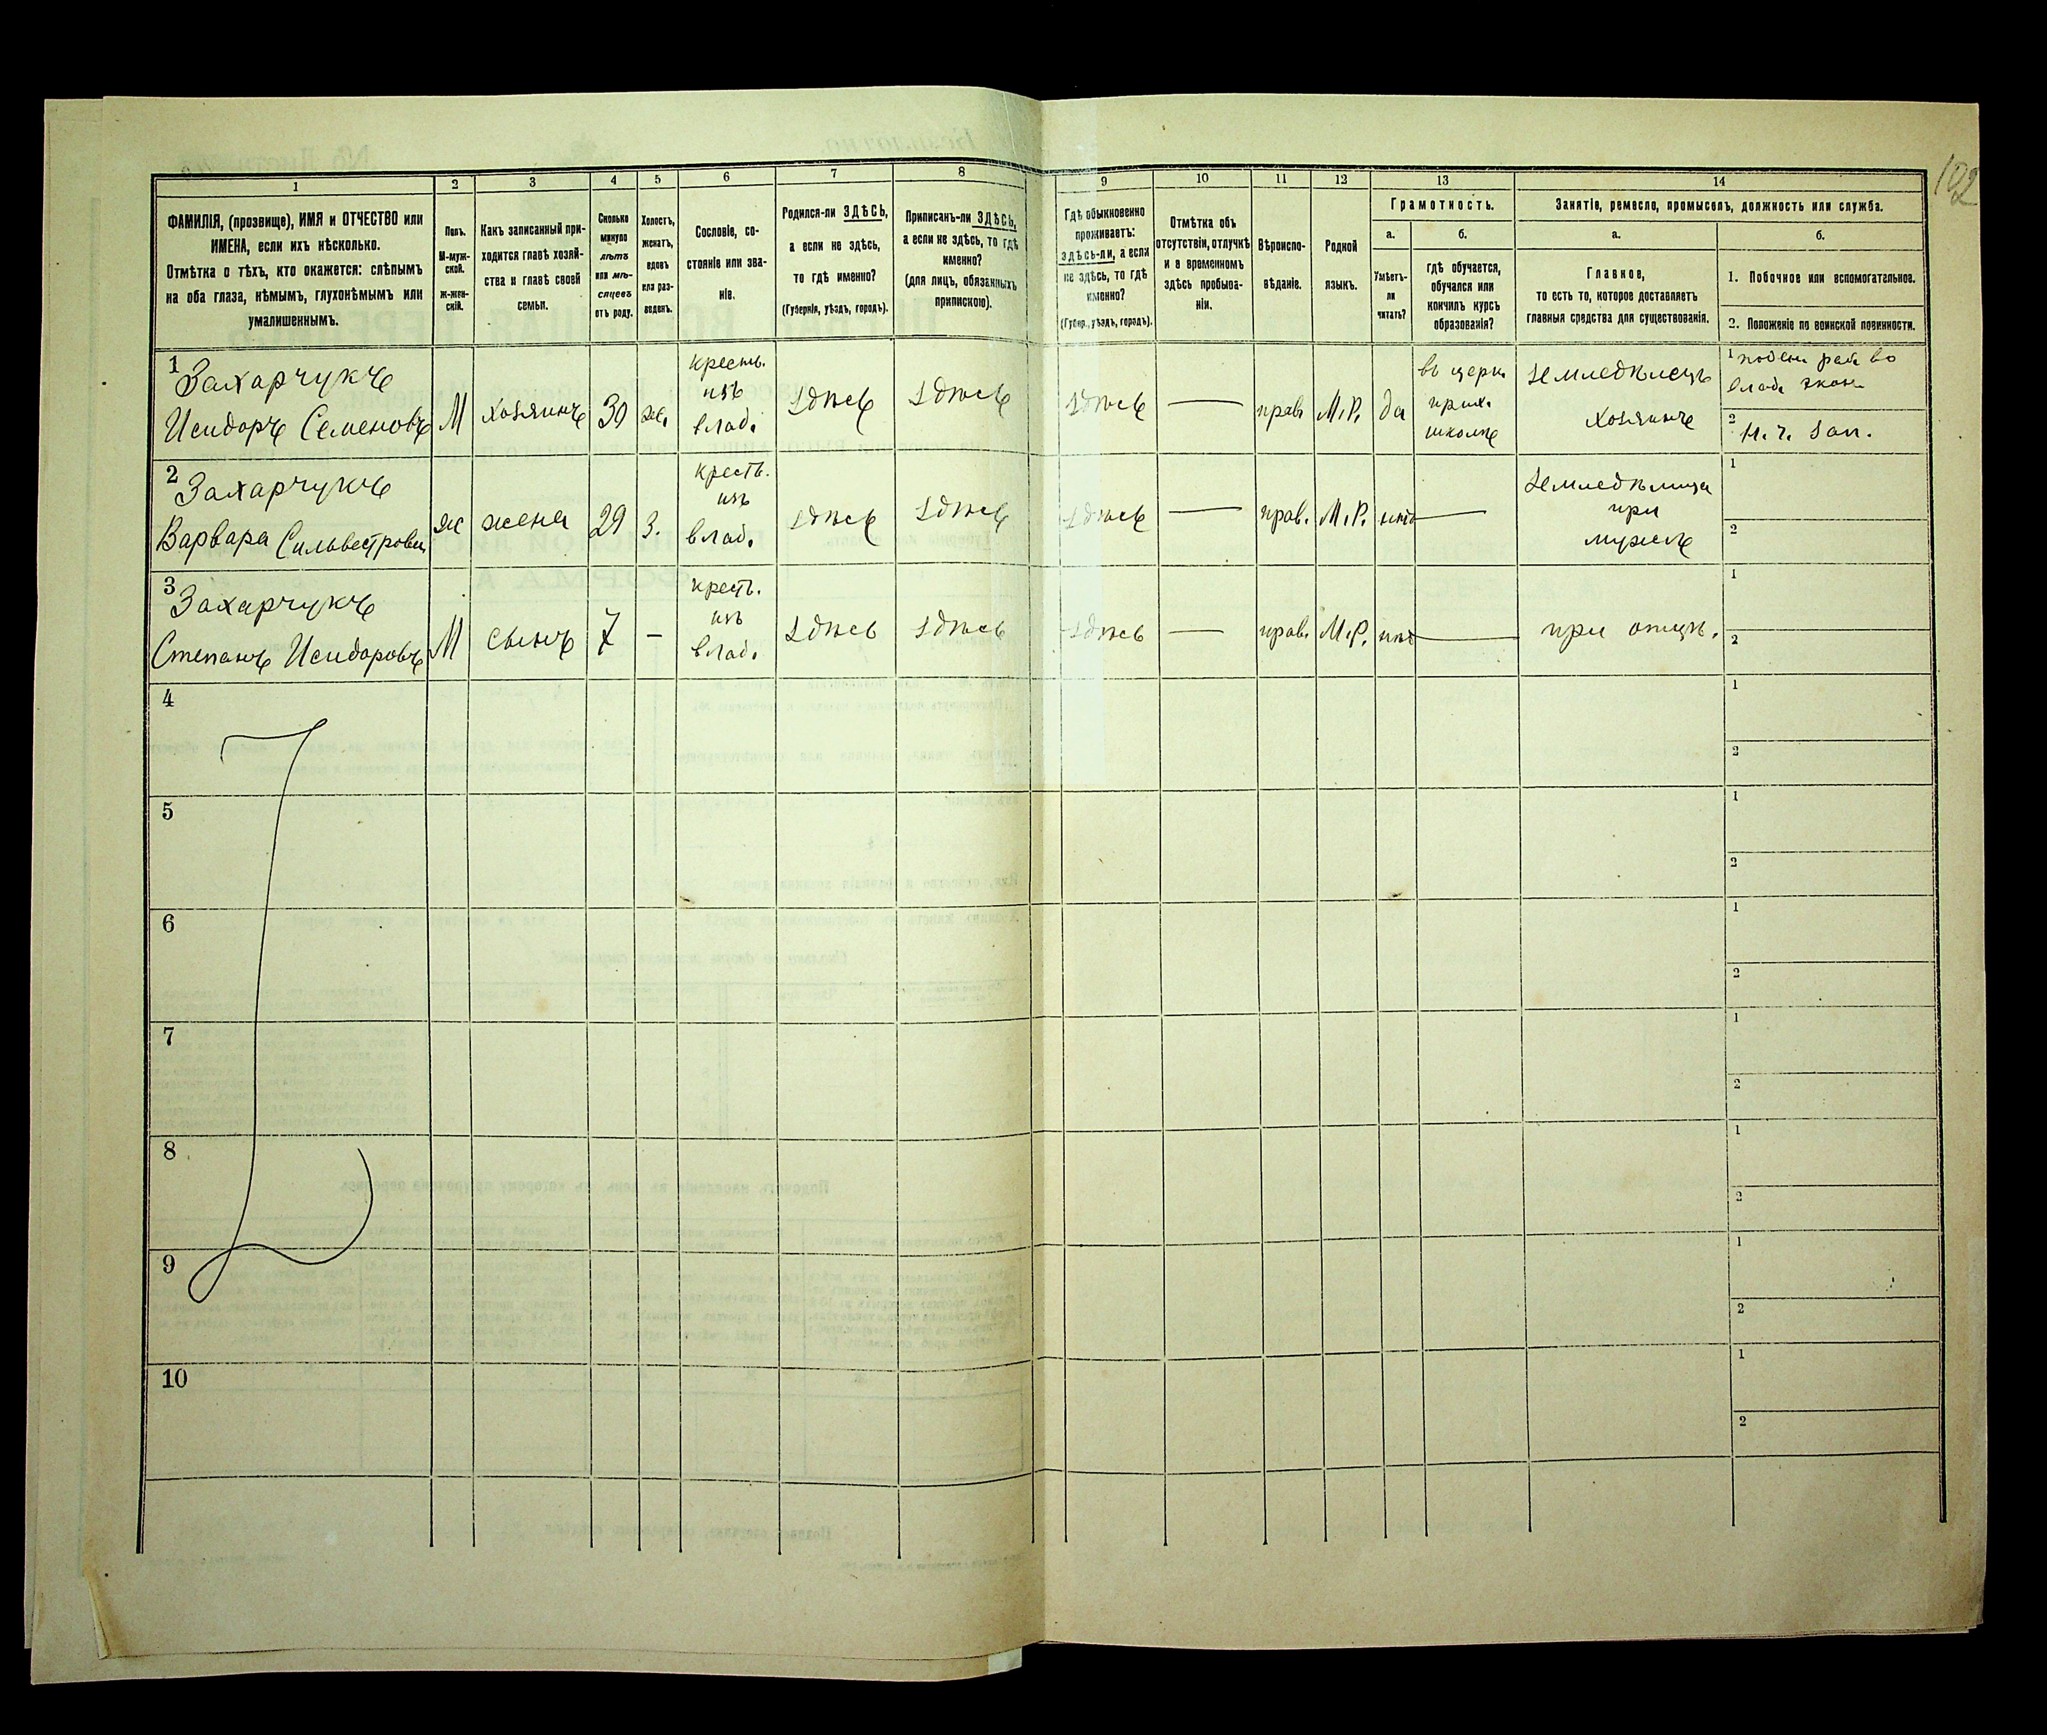 102
1
2
3
4
5
6
7
8
9
10
11
12
13
14
ФАМИЛІЯ, (прозвище), ИМЯ и ОТЧЕСТВО или
ИМЕНА, если ихъ нѣсколько.
Отмѣтка о тѣхъ, кто окажется: слѣпымъ
на оба глаза, нѣмымъ, глухонѣмымъ или
умалишеннымъ.
Полъ.
М-муж-
ской.
ж-жен-
скій.
Какъ записанный при-
ходится главѣ хозяй-
ства и главѣ своей
семьи.
Сколько
минуло
лѣтъ
или мѣ-
сяцевъ
отъ роду.
Холостъ,
женатъ,
вдовъ
или раз-
веденъ.
Сословіе, со-
стояніе или зва-
ніе.
Родился-ли ЗДѢСЬ,
а если не здѣсь,
то гдѣ именно?
(Губернія, уѣздъ, городъ).
Приписанъ-ли ЗДѢСЬ,
а если не здѣсь, то гдѣ
именно?
(для лицъ, обязанныхъ
припискою).
Гдѣ обыкновенно
проживаетъ:
ЗДѢСЬ-ли, а если
не здѣсь, то гдѣ
именно?
(Губер., уѣздъ, городъ).
Отмѣтка объ
отсутствіи, отлучкѣ
и о временномъ
здѣсь пребыва-
ніи.
Вѣроиспо-
вѣданіе.
Родной
языкъ.
Грамотность.
а.
б.
Умѣетъ-
ли
читать?
гдѣ обучается,
обучался или
кончилъ курсъ
образованія?
Занятіе, ремесло, промыселъ, должность или служба.
а.
б.
Главное,
то есть то, которое доставляетъ
главныя средства для существованія.
1. Побочное или вспомогательное.
2. Положеніе по воинской повинности.
1
Захарчукъ
Исидоръ Семеновъ
М
хозяинъ
30
ж.
крестъ.
изъ
влад.
здѣсь
здѣсь
здѣсь
прав.
М.Р.
да
въ церк.
прих.
школѣ
земледѣлецъ
хозяинъ
1 поден раб во
влад. экон.
2
Н. ч. зап.
2
Захарчукъ
Варвара Сильвестровна
ж
жена
29
з.
крестъ.
изъ
влад.
здѣсь
здѣсь
здѣсь
прав.
М.Р.
нѣтъ
земледѣлица
при
мужѣ
1
2
3
Захарчукъ
Степанъ Исидоровъ
М
сынъ
7
крестъ.
изъ
влад.
здѣсь
здѣсь
здѣсь
прав.
М.Р.
нѣтъ
при отцѣ.
1
2
4
1
2
5
1
2
6
1
2
7
1
2
8
1
2
9
1
2
10
1
2